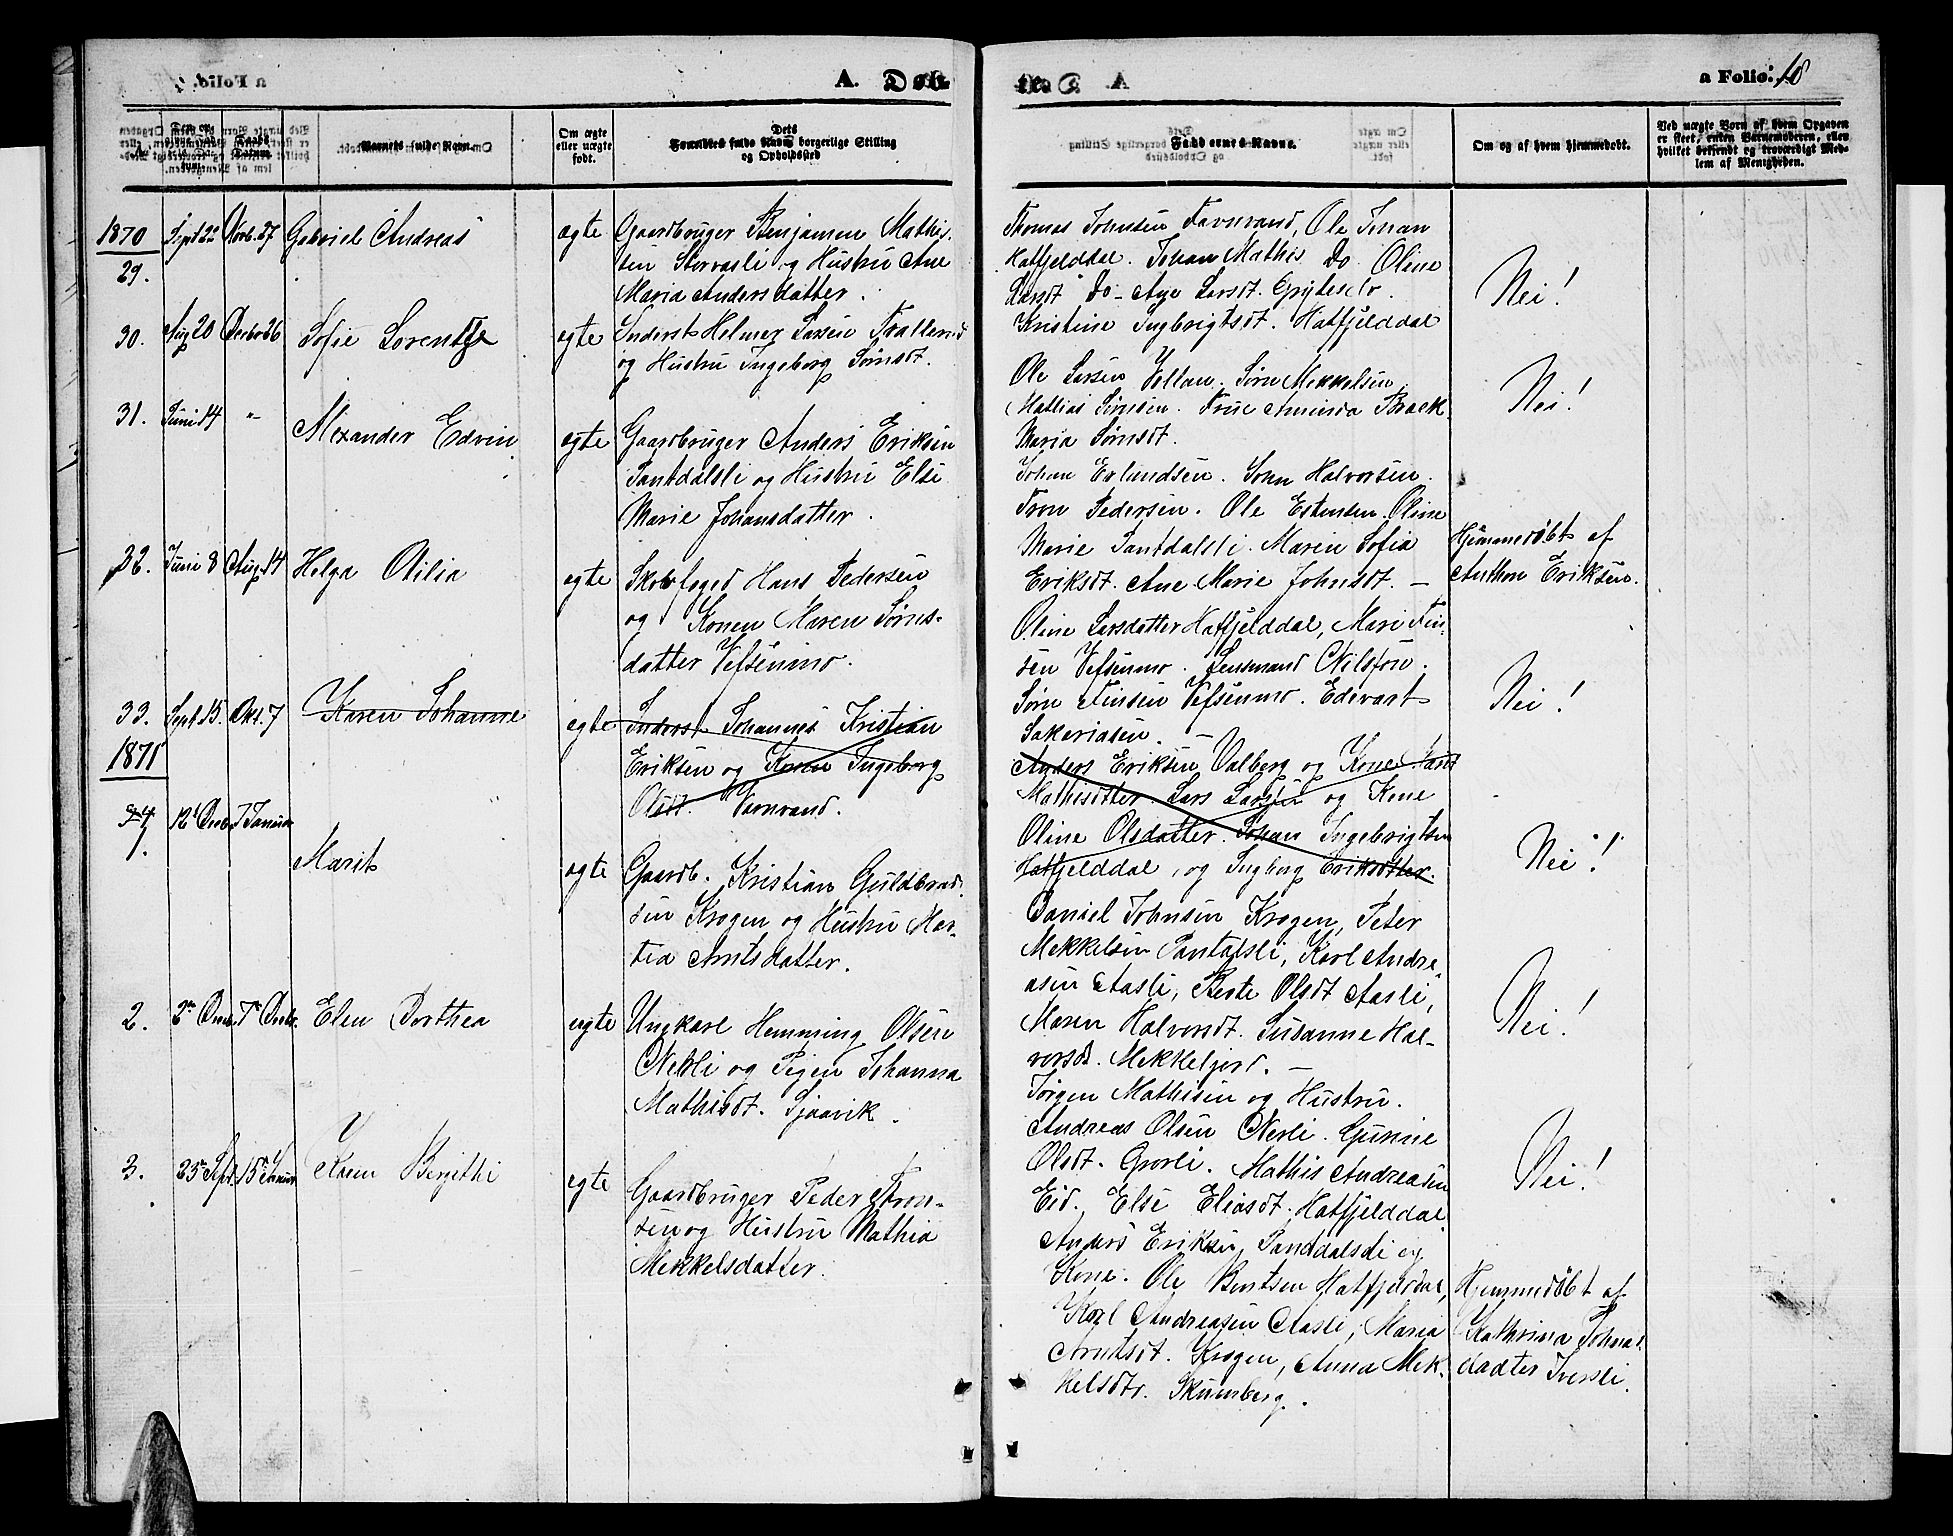 A. Døbte.
a Folio. 10
Barnets fulde Navn.
Om ægte eller uægte født.
Dets Forældres fulde Navn borgerlige Stilling og Opholdssted
Faddernes Navne.
Om og af hvem hjemmedøbt.
Ved uægte Børn af hvem Opgaven er skeet, enten Barnemoderen, eller hvilket bekiendt og troværdigt Medlem af Menigheden.
1870
29. Sept 22 Novb. 27 Gabriel Andreas ægte Gaardbruger Benjamin Mathis-
sen Storvasli og Hustru Ane
Maria Andersdatter.
Thomas Johnsen Favnvand, Ole Johan
Hatfjelddal. Johan Mathis Do Oline
Larsdt Do - Ane Larsdt.
Kristine Ingbrigtsdt. Hatfjelddal
Nei!
30. Aug 20 Decbr 26 Sofie Lorentze egte Inderst Helmer Larsen
og Hustru Ingeborg Sørnsdt.
Ole Larsen Vollan. Sørn Mekkelsen
Mathias Sørnsen. Frue Aminda Brack
Maria Sørnsdt.
Nei!
31. Juni 14 " Alexander Edvin egte Gaardbruger Anders Eriksen
Pantdalsli og Hustru Else
Marie Johansdatter.
Johan Erlandsen. John Halvorsen.
Tron Pedersen. Ole Estensen. Oline
Marie Pantdalsli. Maren Sofia
Eriksdt. Ane Marie Johnsdt. —
Hjemmedøbt af
Anthon Eriksen.
32. Juni 8 Aug. 14 Helga Otilia egte Skolefoged Hans Pedersen
og Konen Maren Sørns-
datter Vefsenmo.
Oline Larsdatter Hatfjelddal, Mari Fin-
sen Vefsenmo. Lensmand
Sørn Finsen Vefsenmo. Edevart
Sakeriasen. —
Nei!
33. Sept. 15. Okt. 7 Karen Johanne egte Inderst Johannes Kristian
Eriksen og Kone Ingeborg
Olsdt. Varnvand.
Anders Eriksen Valberg og Kone
Mathisdtter. Lars Larsen og Kone
Oline Olsdatter. Johan Ingebrigtsen
Hatfjelddal, og Ingborg Eriksdtter.
Nei!
1871
34
1. 12te Decb. 7 Januar Marit egte Gaardb. Kristian Guldbrand-
sen Krogen og Hustru Mar-
tea Arntsdatter.
Daniel Johnsen Krogen, Peter
Mekkelsen Pantdalsli, Karl Andre-
asen Aasli, Berte Olsdt Aasli,
Maren Halvorsdt. Susanne Hal-
vorsdt. Mekkeljord. —
Nei!
2. Elen Dorthea egte Ungkarl Hemming Olsen
Nerli og Pigen Johanna
Mathisdt. Sjaavik.
Jørgen Mathisen og Hustru.
Andreas Olsen Nerli. Gunine
Olsdt. Grovli. Mathis Andreasen
Eid. Else Eliasdt. Hatfjelddal
Nei!
3. 25de Sept. 15de Januar Karen Bergithe egte Gaardbruger Peder Tron-
sen og Hustru Mathia
Mekkelsdatter.
Anders Eriksen, Pantdalsli og
Kone. Ole Bentsen Hatfjelddal,
Karl Andreasen Aasli, Maria
Arntsdt. Krogen, Anna Mek-
kelsdtr. Skumberg.
Hjemmedøbt af
Kathrina Johns-
dadter Iversli.